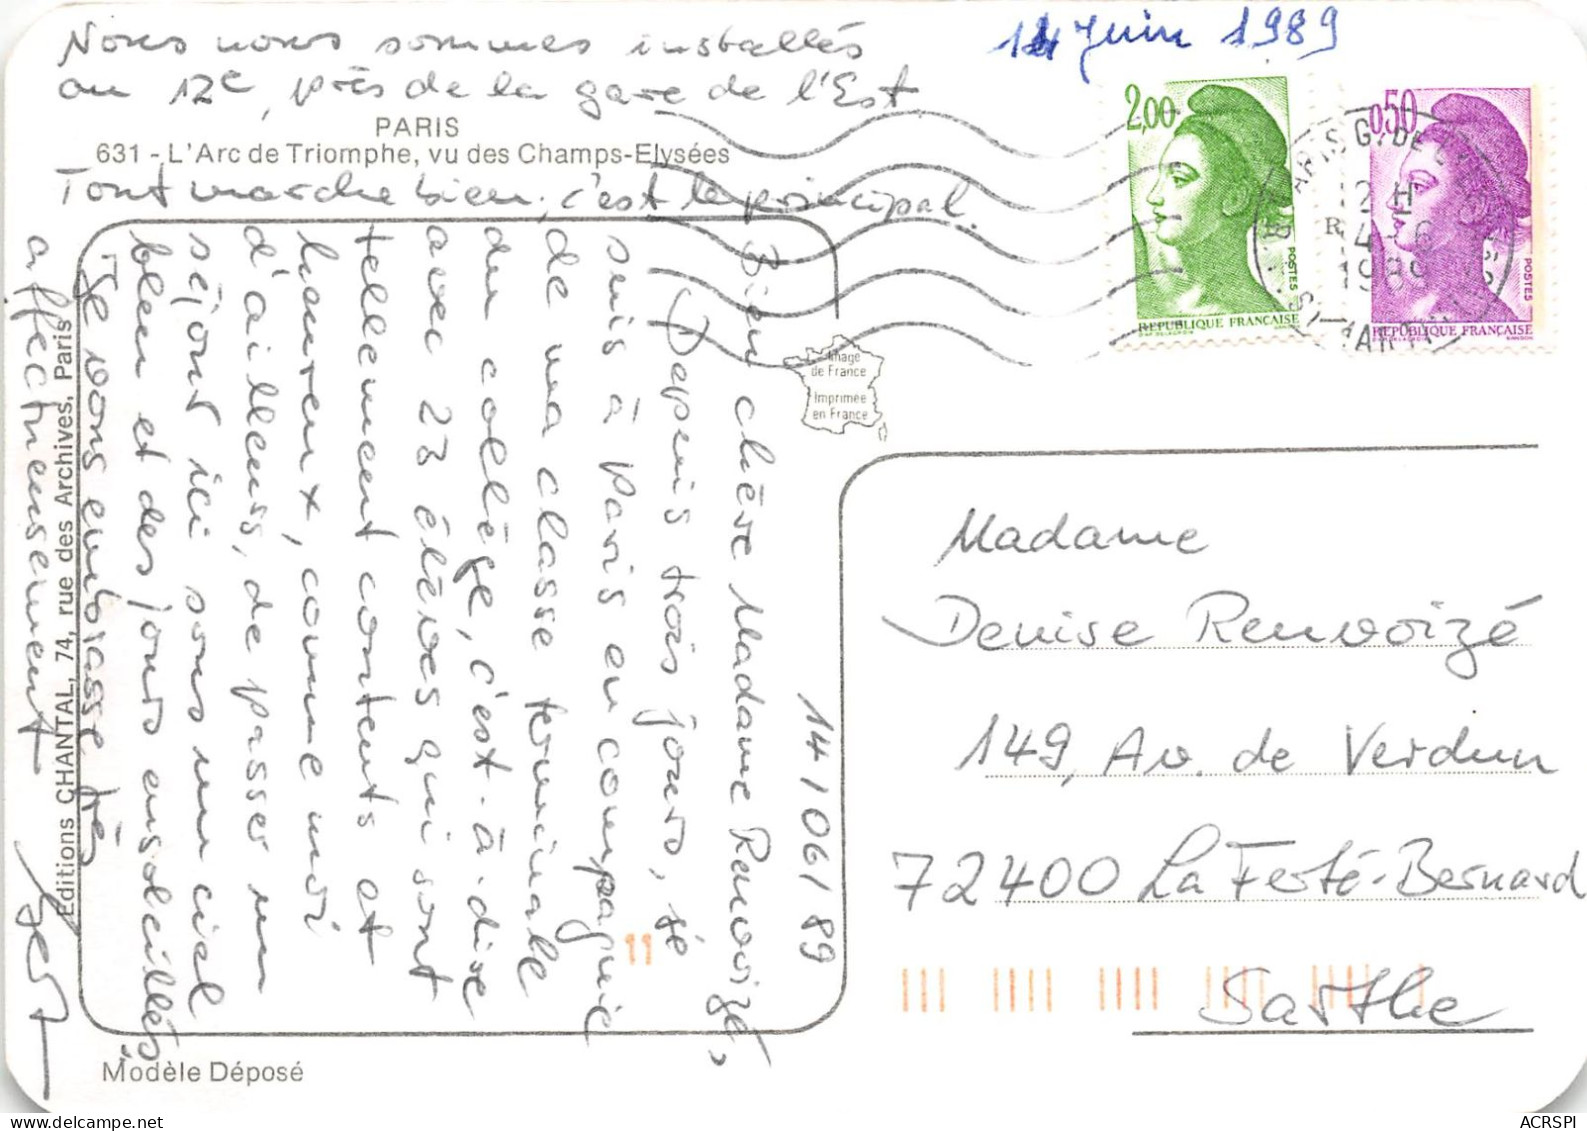 Nous nous sommes installés
au 12e, près de la gare de l'Est
PARIS
631 - L'Arc de Triomphe, vu des Champs-Elysées
Tout marche bien, c'est le principal.
14 Juin 1989
2,00
POSTES
REPUBLIQUE FRANÇAISE
0,50
POSTES
REPUBLIQUE FRANÇAISE
PARIS G. DE L'EST
12 H
14 - 6
1989
R. ST MARTIN
Image
de France
Imprimée
en France
14/06/89
Bien chère Madame Renvoizé,
Depuis trois jours, je
suis à Paris en compagnie
de ma classe terminale
du collège, c'est-à-dire
avec 23 élèves qui sont
tellement contents et
heureux, comme moi
d'ailleurs, de passer un
séjour ici sous un ciel
bleu et des jours ensoleillés.
Je vous embrasse très
affectueusement
Editions CHANTAL, 74, rue des Archives, Paris
Modèle Déposé
Madame
Denise Renvoizé
149, Av. de Verdun
72400 La Ferté-Bernard
Sarthe
11
ACRSPI